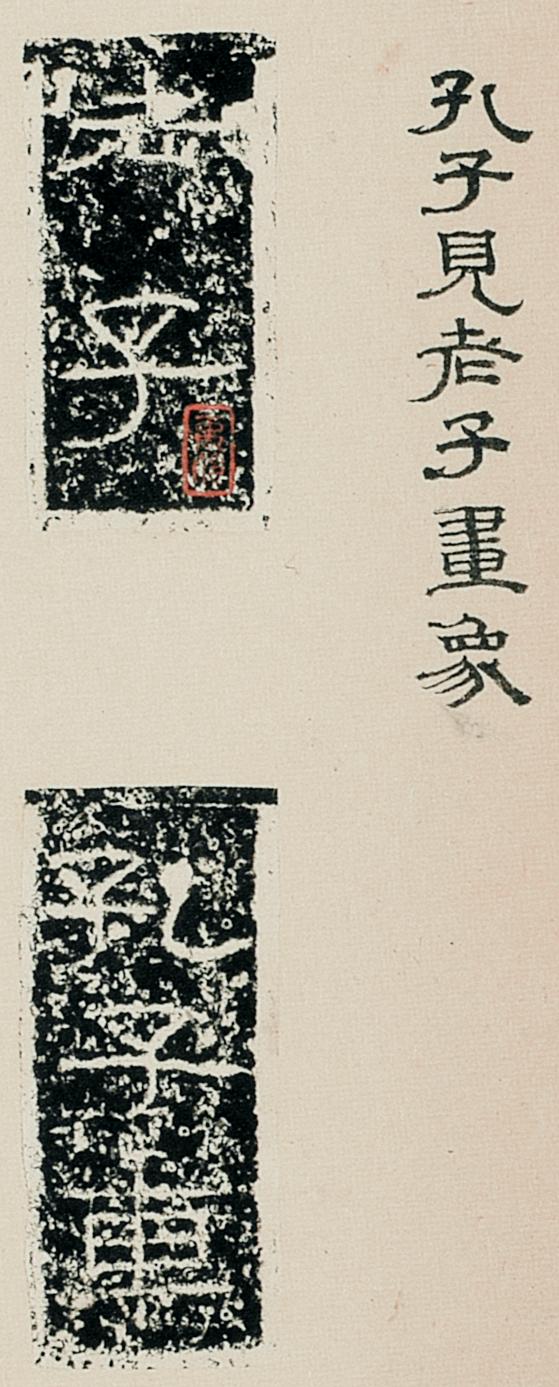 孔子見老子畫象
老子
孔子車